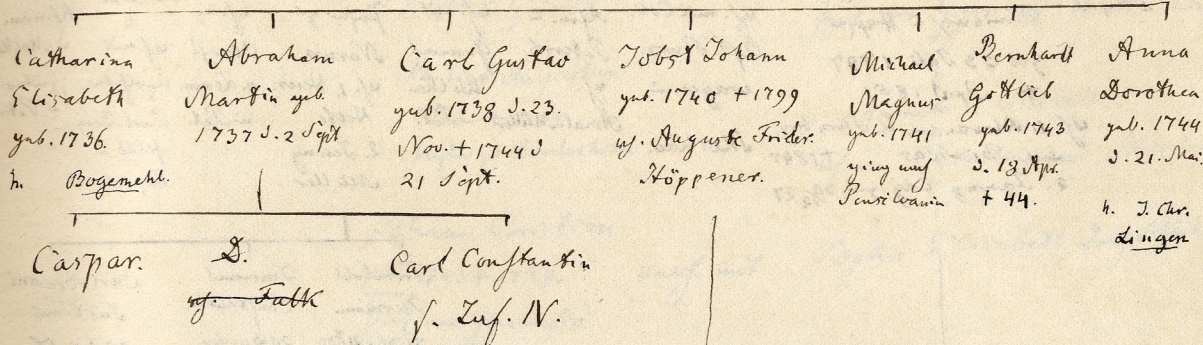 Catharina
Elisabeth
geb. 1736.
h. Bogemehl.
Abraham
Martin geb.
1737 d. 2 Sept
Carl Gustav
geb. 1738 d. 23.
Nov. + 1744 d
21 Sept.
Jobst Johann
geb. 1740 + 1799
Auguste Frider.
Höppener.
Michael
Magnus
geb. 1741
ging nach
Pensilvanien
Bernhardt
Gottlieb
geb. 1743
d. 13 Apr.
+ 44.
Anna
Dorothea
geb. 1744
d. 21. Mai
h. J. Chr.
Lingen
Caspar.
D.
Falk
Carl Constantin
s. IV.